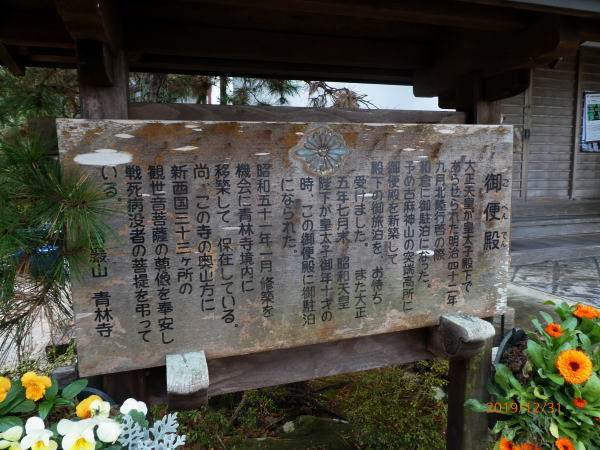 御便殿
ごべんでん
大正天皇が皇太子殿下で
あらせられた明治四十二年
九月北陸行啓の際
和倉に御駐泊になった。
予め弁天崎神山の突端高所に
御便殿を新築して
殿下の御旅泊を、お待ち
受けました。また大正
五年七月末、昭和天皇
陛下が皇太子御年十才の
時、この御便殿に御駐泊
になられた。
昭和五十一年一月修築を
機会に青林寺境内に
移築して、保存している。
尚、この寺の奥山方に
新西国三十三ヶ所の
観世音菩薩の尊像を奉安し
戦死病没者の菩提を弔って
いる。
山 青林寺
2019/12/31